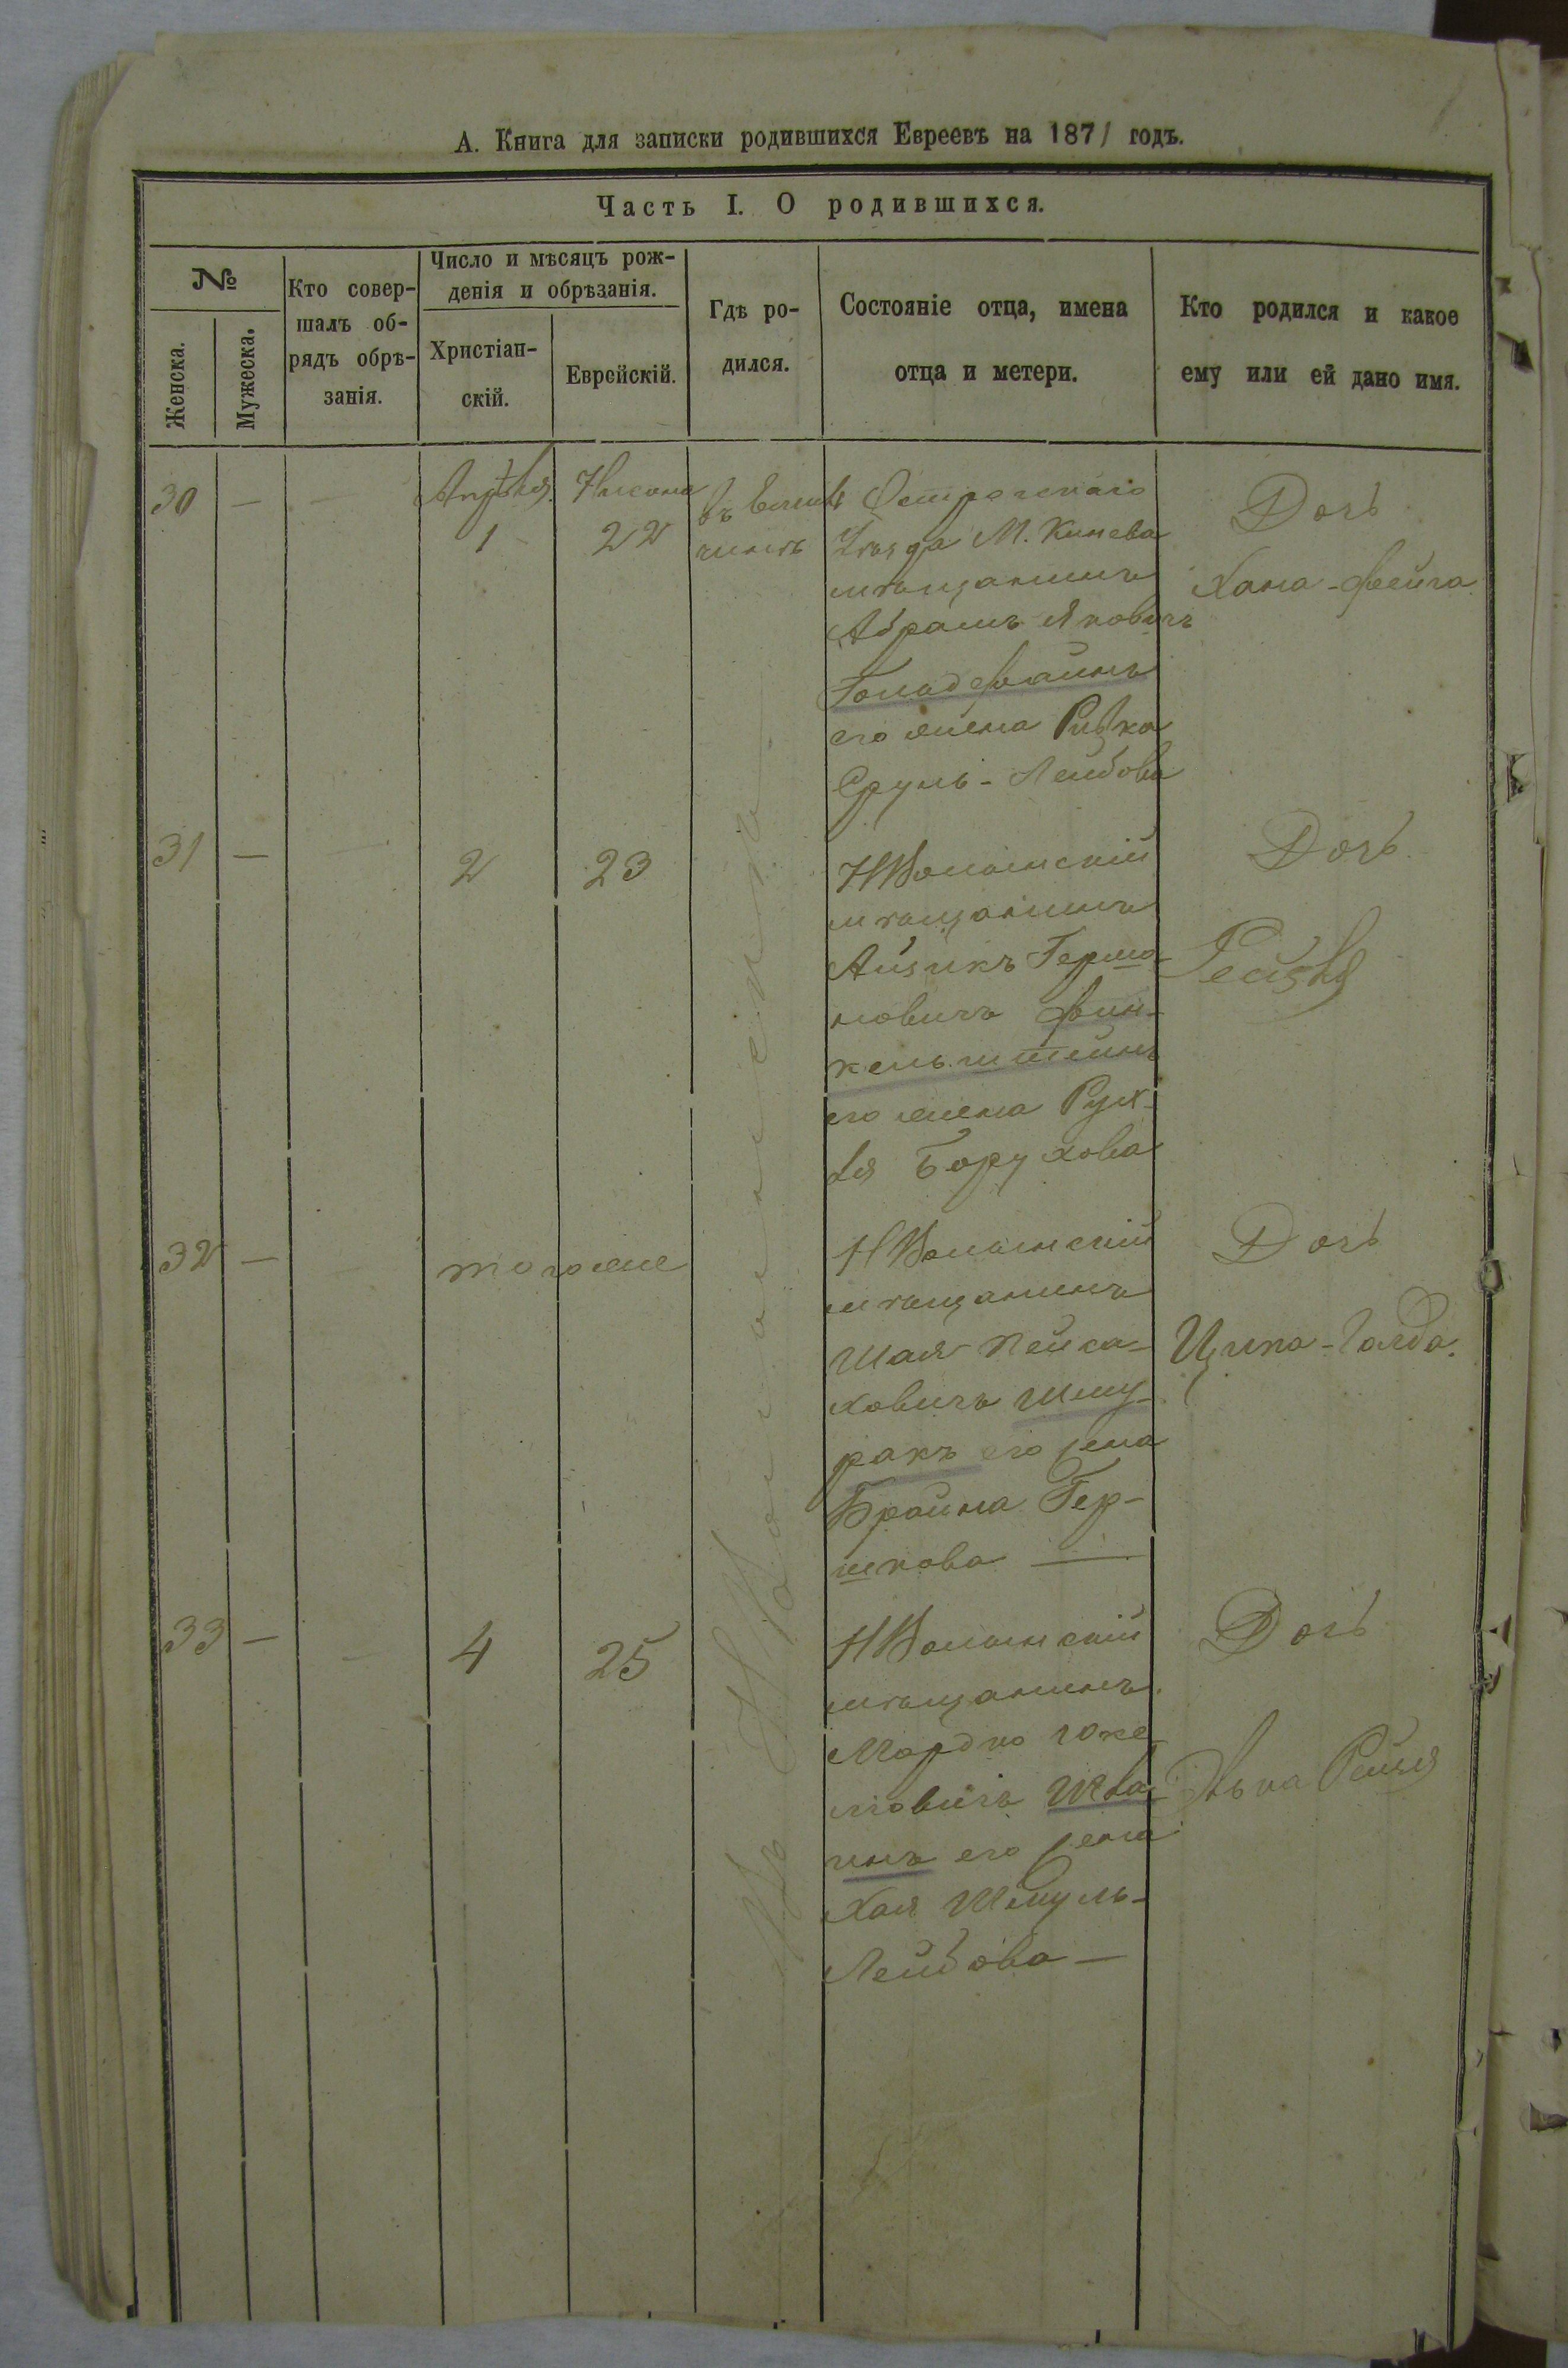 А. Книга для записки родившихся Евреевъ на 1871 годъ.
Часть I. О родившихся.
№
Женска.
Мужеска.
Кто совер-
шалъ об-
рядъ обрѣ-
занія.
Число и мѣсяцъ рож-
денія и обрѣзанія.
Христіан-
скій.
Еврейскій.
Гдѣ ро-
дился.
Состояніе отца, имена
отца и метери.
Кто родился и какое
ему или ей дано имя.
30 — —
Апрѣля
1
Нисана
22
въ
Острогскаго
Уѣзда М. Кунева
мѣщанинъ
Абрамъ Яковичъ
его жена Ривка
Сруль-Лейбова
Дочь
Хана-Фейга
31 —
2
23
НВолынскій
мѣщанинъ
Айзикъ Гершо-
новичъ Фин-
кельштейнъ
его жена Рух-
ля Борухова
Дочь
Рейзя
32 —
тогоже
НВолынскій
мѣщанинъ
Шая Пейса-
ховичъ Шму-
ракъ его жена
Брайна Гер-
шкова —
Дочь
Ципа-Голда.
33 — —
4
25
НВолынскій
мѣщанинъ
Мордко Юке-
его жена
Хая Шмуль-
Лейбова —
Дочь
Рейзя
Въ НВолынскѣ